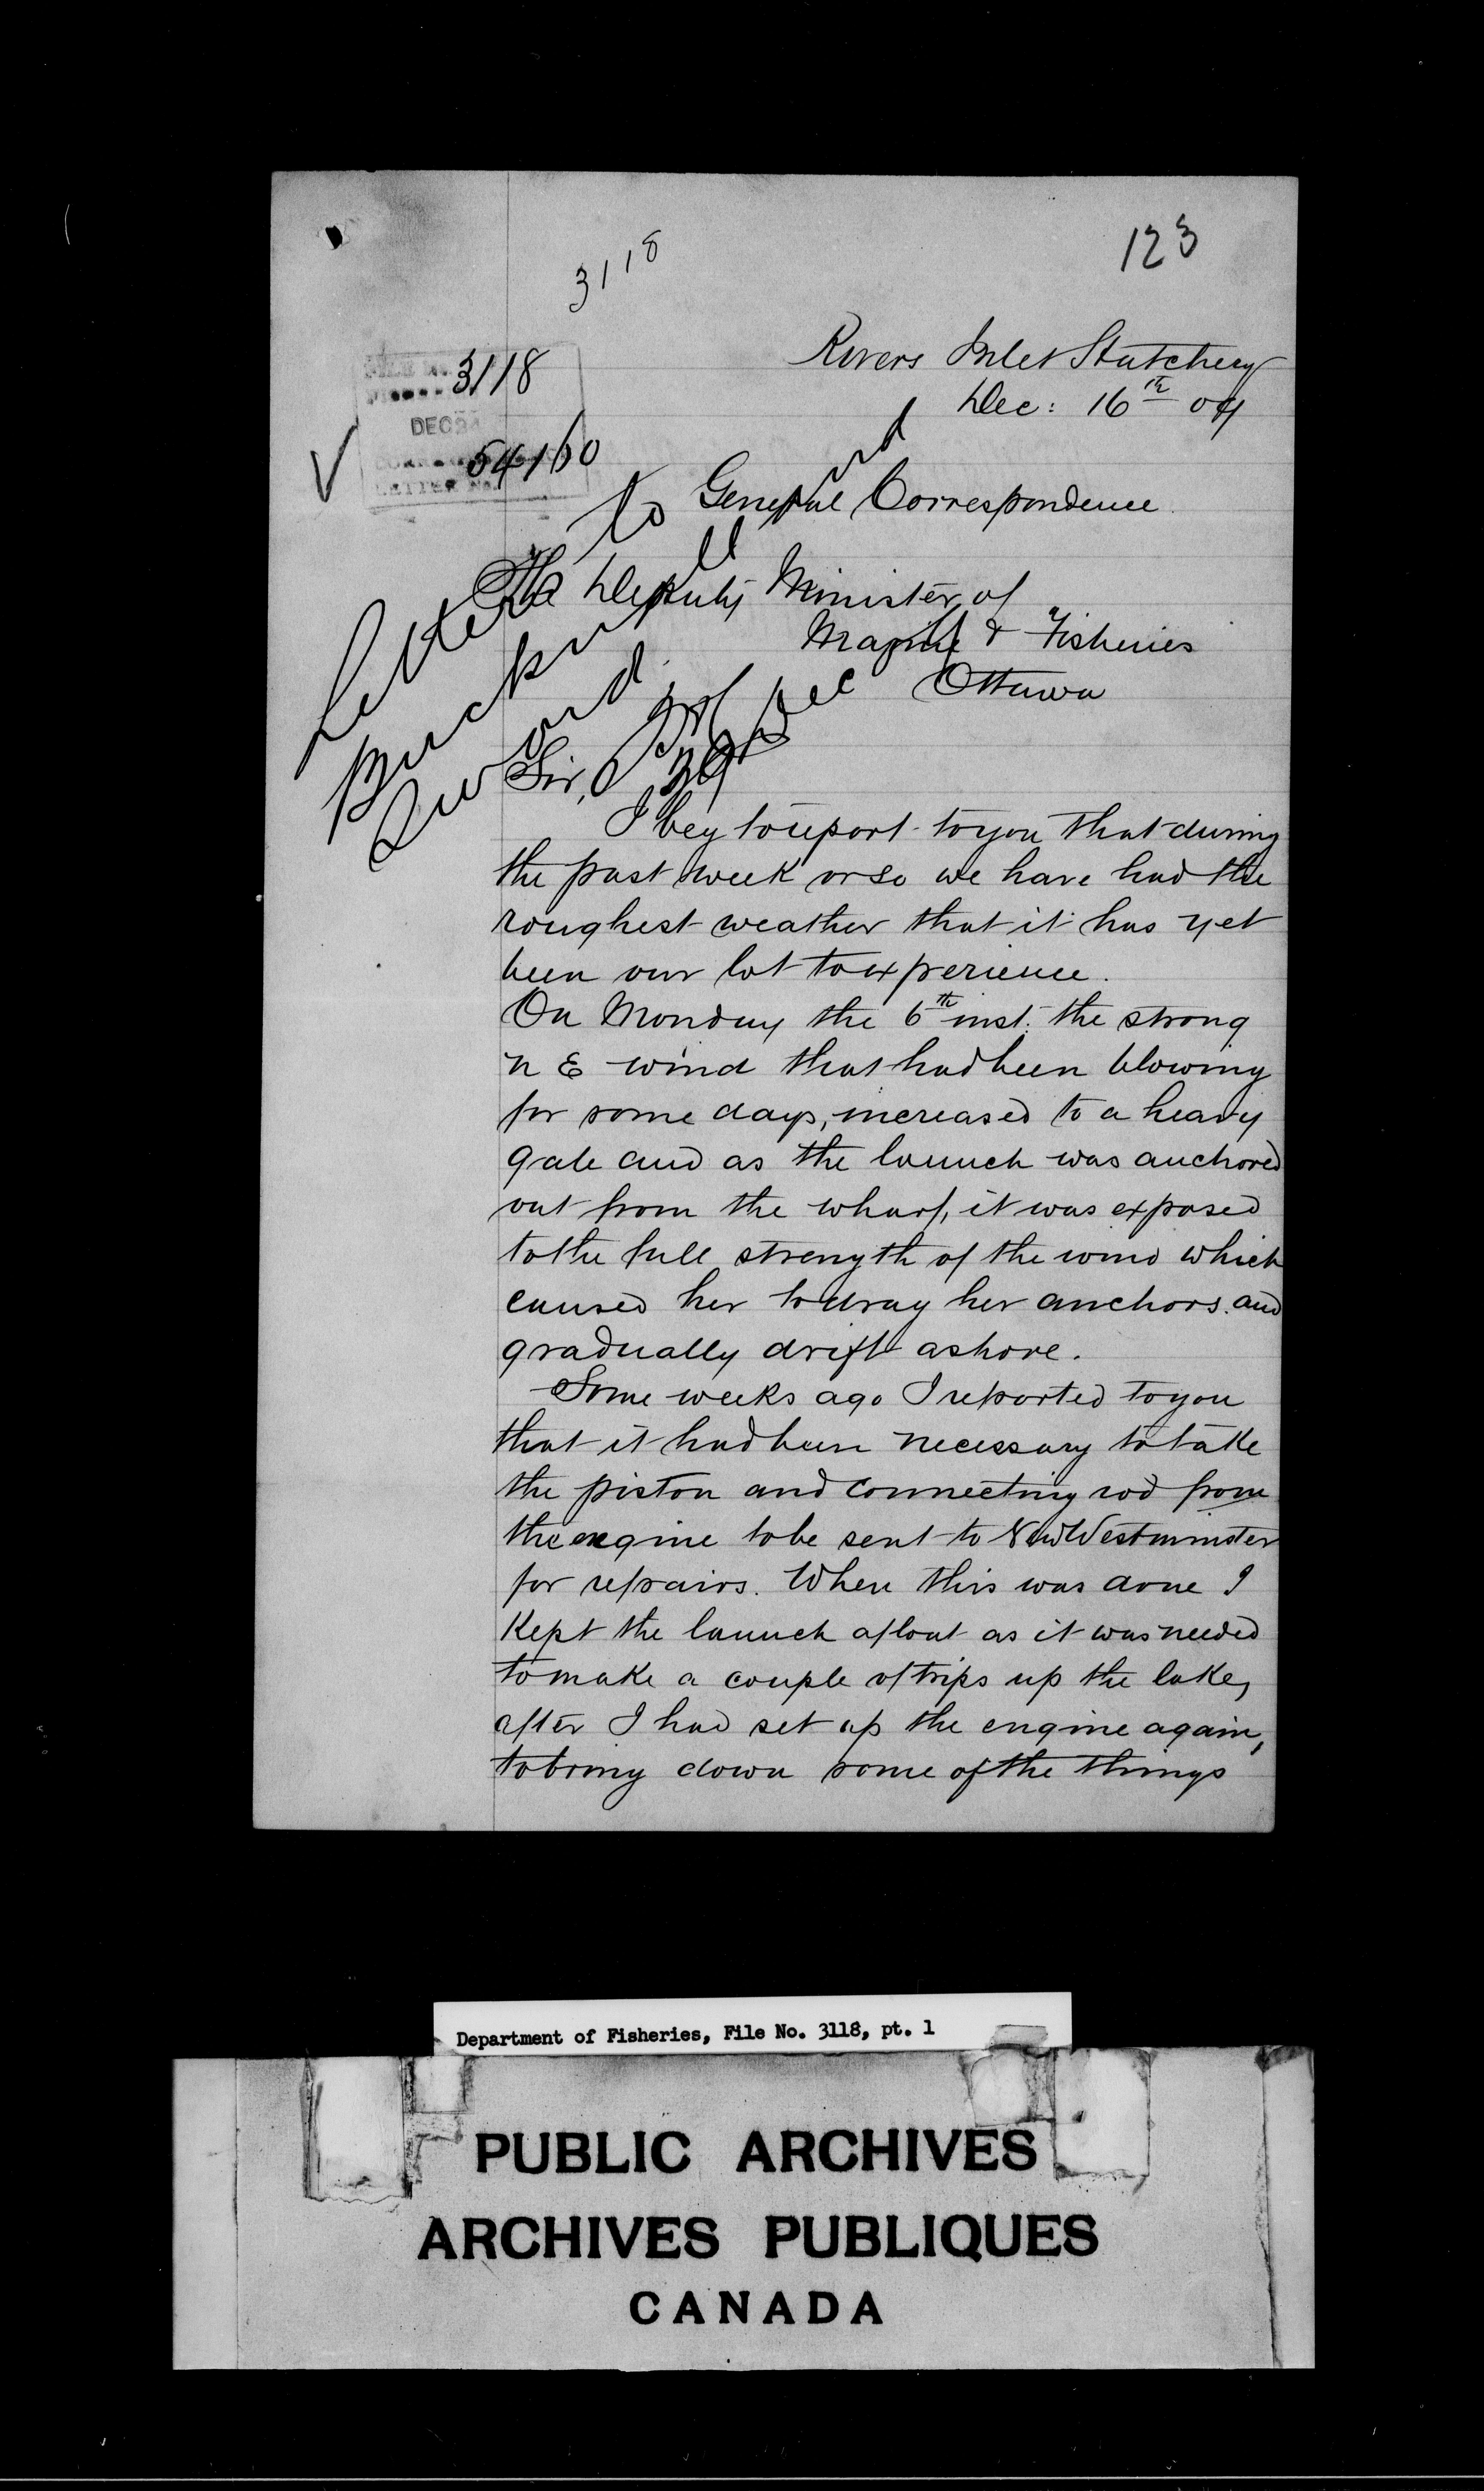 3118
123
Rivers Inlet Hatchery
Dec: 16th 09
3118
DEC
54160
General Correspondence
The Deputy Minister of
Marine & Fisheries
Ottawa
Letters to
and
Sir,
I beg to report to you that during
the past week or so we have had the
roughest weather that it has yet
been our lot to experience.
On Monday the 6th inst. the strong
N E wind that had been blowing
for some days, increased to a heavy
gale and as the launch was anchored
out from the wharf, it was exposed
to the full strength of the wind which
caused her to drag her anchors and
gradually drift ashore.
Some weeks ago I reported to you
that it had been necessary to take
the piston and connecting rod from
the engine to be sent to New Westminster
for repairs. When this was done I
kept the launch afloat as it was needed
to make a couple of trips up the lake,
after I had set up the engine again,
to bring down some of the things
Department of Fisheries, File No. 3118, pt. 1
PUBLIC ARCHIVES
ARCHIVES PUBLIQUES
CANADA